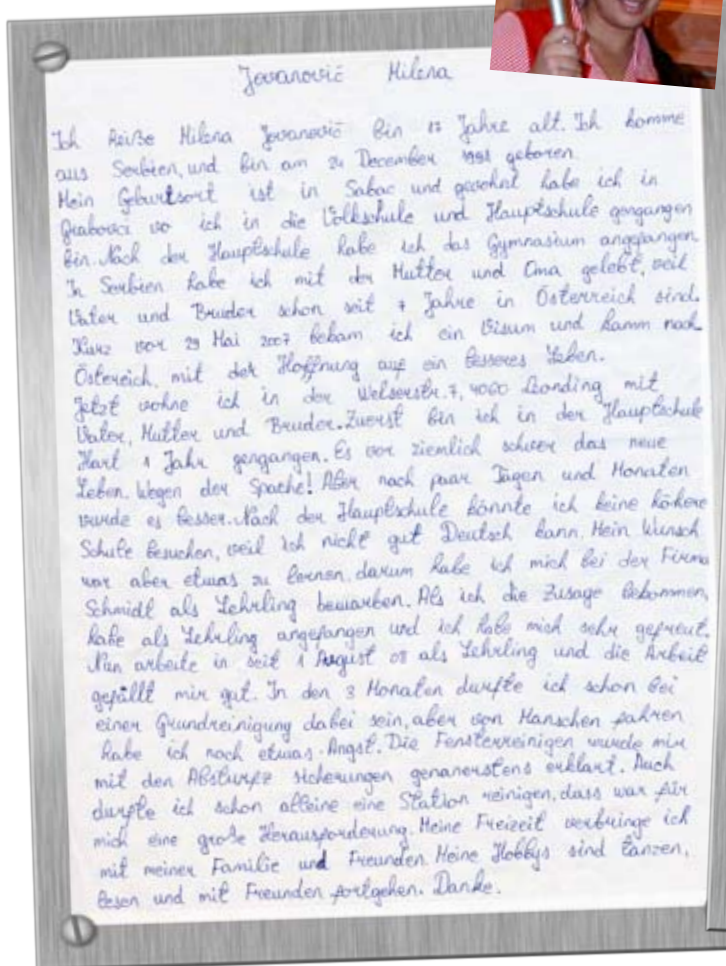 Jovanović Milena
Ich heiße Milena Jovanović bin 17 Jahre alt. Ich komme
aus Serbien, und bin am 24 December 1991 geboren.
Mein Geburtsort ist in Sabac und gewohnt habe ich in
Grabovci wo ich in die Volkschule und Hauptschule gengangen
bin. Nach der Hauptschule habe ich das Gymnasium angefangen.
In Serbien habe ich mit der Mutter und Oma gelebt, weil
Vater und Bruder schon seit 7 Jahre in Österreich sind.
Kurz vor 29 Mai 2007 bekam ich ein Visum und kamm nach
Östereich, mit der Hoffnung auf ein besseres Leben.
Jetzt wohne ich in der Welserstr. 7, 4060 Leonding mit
Vater, Mutter und Bruder. Zuerst bin ich in der Hauptschule
Hart 1 Jahr gengangen. Es war ziemlich schwer das neue
Leben. Wegen der Spache! Aber nach paar Tagen und Monaten
wurde es besser. Nach der Hauptschule könnte ich keine höhere
Schule besuchen, weil ich nicht gut Deutsch kann. Mein Wunsch
war aber etwas zu lernen, darum habe ich mich bei der Firma
Schmidt als Lehrling bewarben. Als ich die Zusage bekommen,
habe als Lehrling angefangen und ich habe mich sehr gefreut.
Nun arbeite in seit 1 August 08 als Lehrling und die Arbeit
gefällt mir gut. In den 3 Monaten durfte ich schon bei
einer Grundreinigung dabei sein, aber von Manschen fahren
habe ich noch etwas Angst. Die Fensterreinigen wurde mir
mit den Absturz sicherungen genanerstens erklärt. Auch
durfte ich schon alleine eine Station reinigen, dass war für
mich eine große Herausforderung. Meine Freizeit verbringe ich
mit meiner Familie und Freunden. Meine Hobbys sind tanzen,
lesen und mit Freunden fortgehen. Danke.